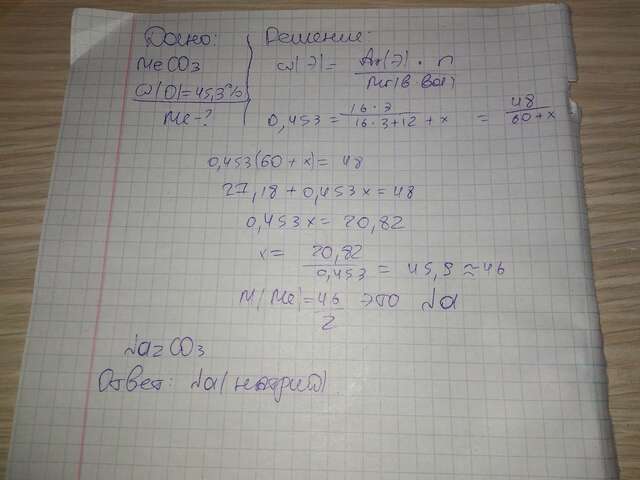 Дано:
MeCO3
ω(O)=45,3%
Me-?
Решение:
ω(Э)= Ar(Э) · n / Mr(в-ва)
0,453 = 16·3 / 16·3+12+x = 48 / 60+x
0,453(60+x)= 48
27,18+0,453x=48
0,453x=20,82
x= 20,82 / 0,453 = 45,9 ≈46
M(Me)= 46 / 2 это Na
Na2CO3
Ответ: Na(натрий)